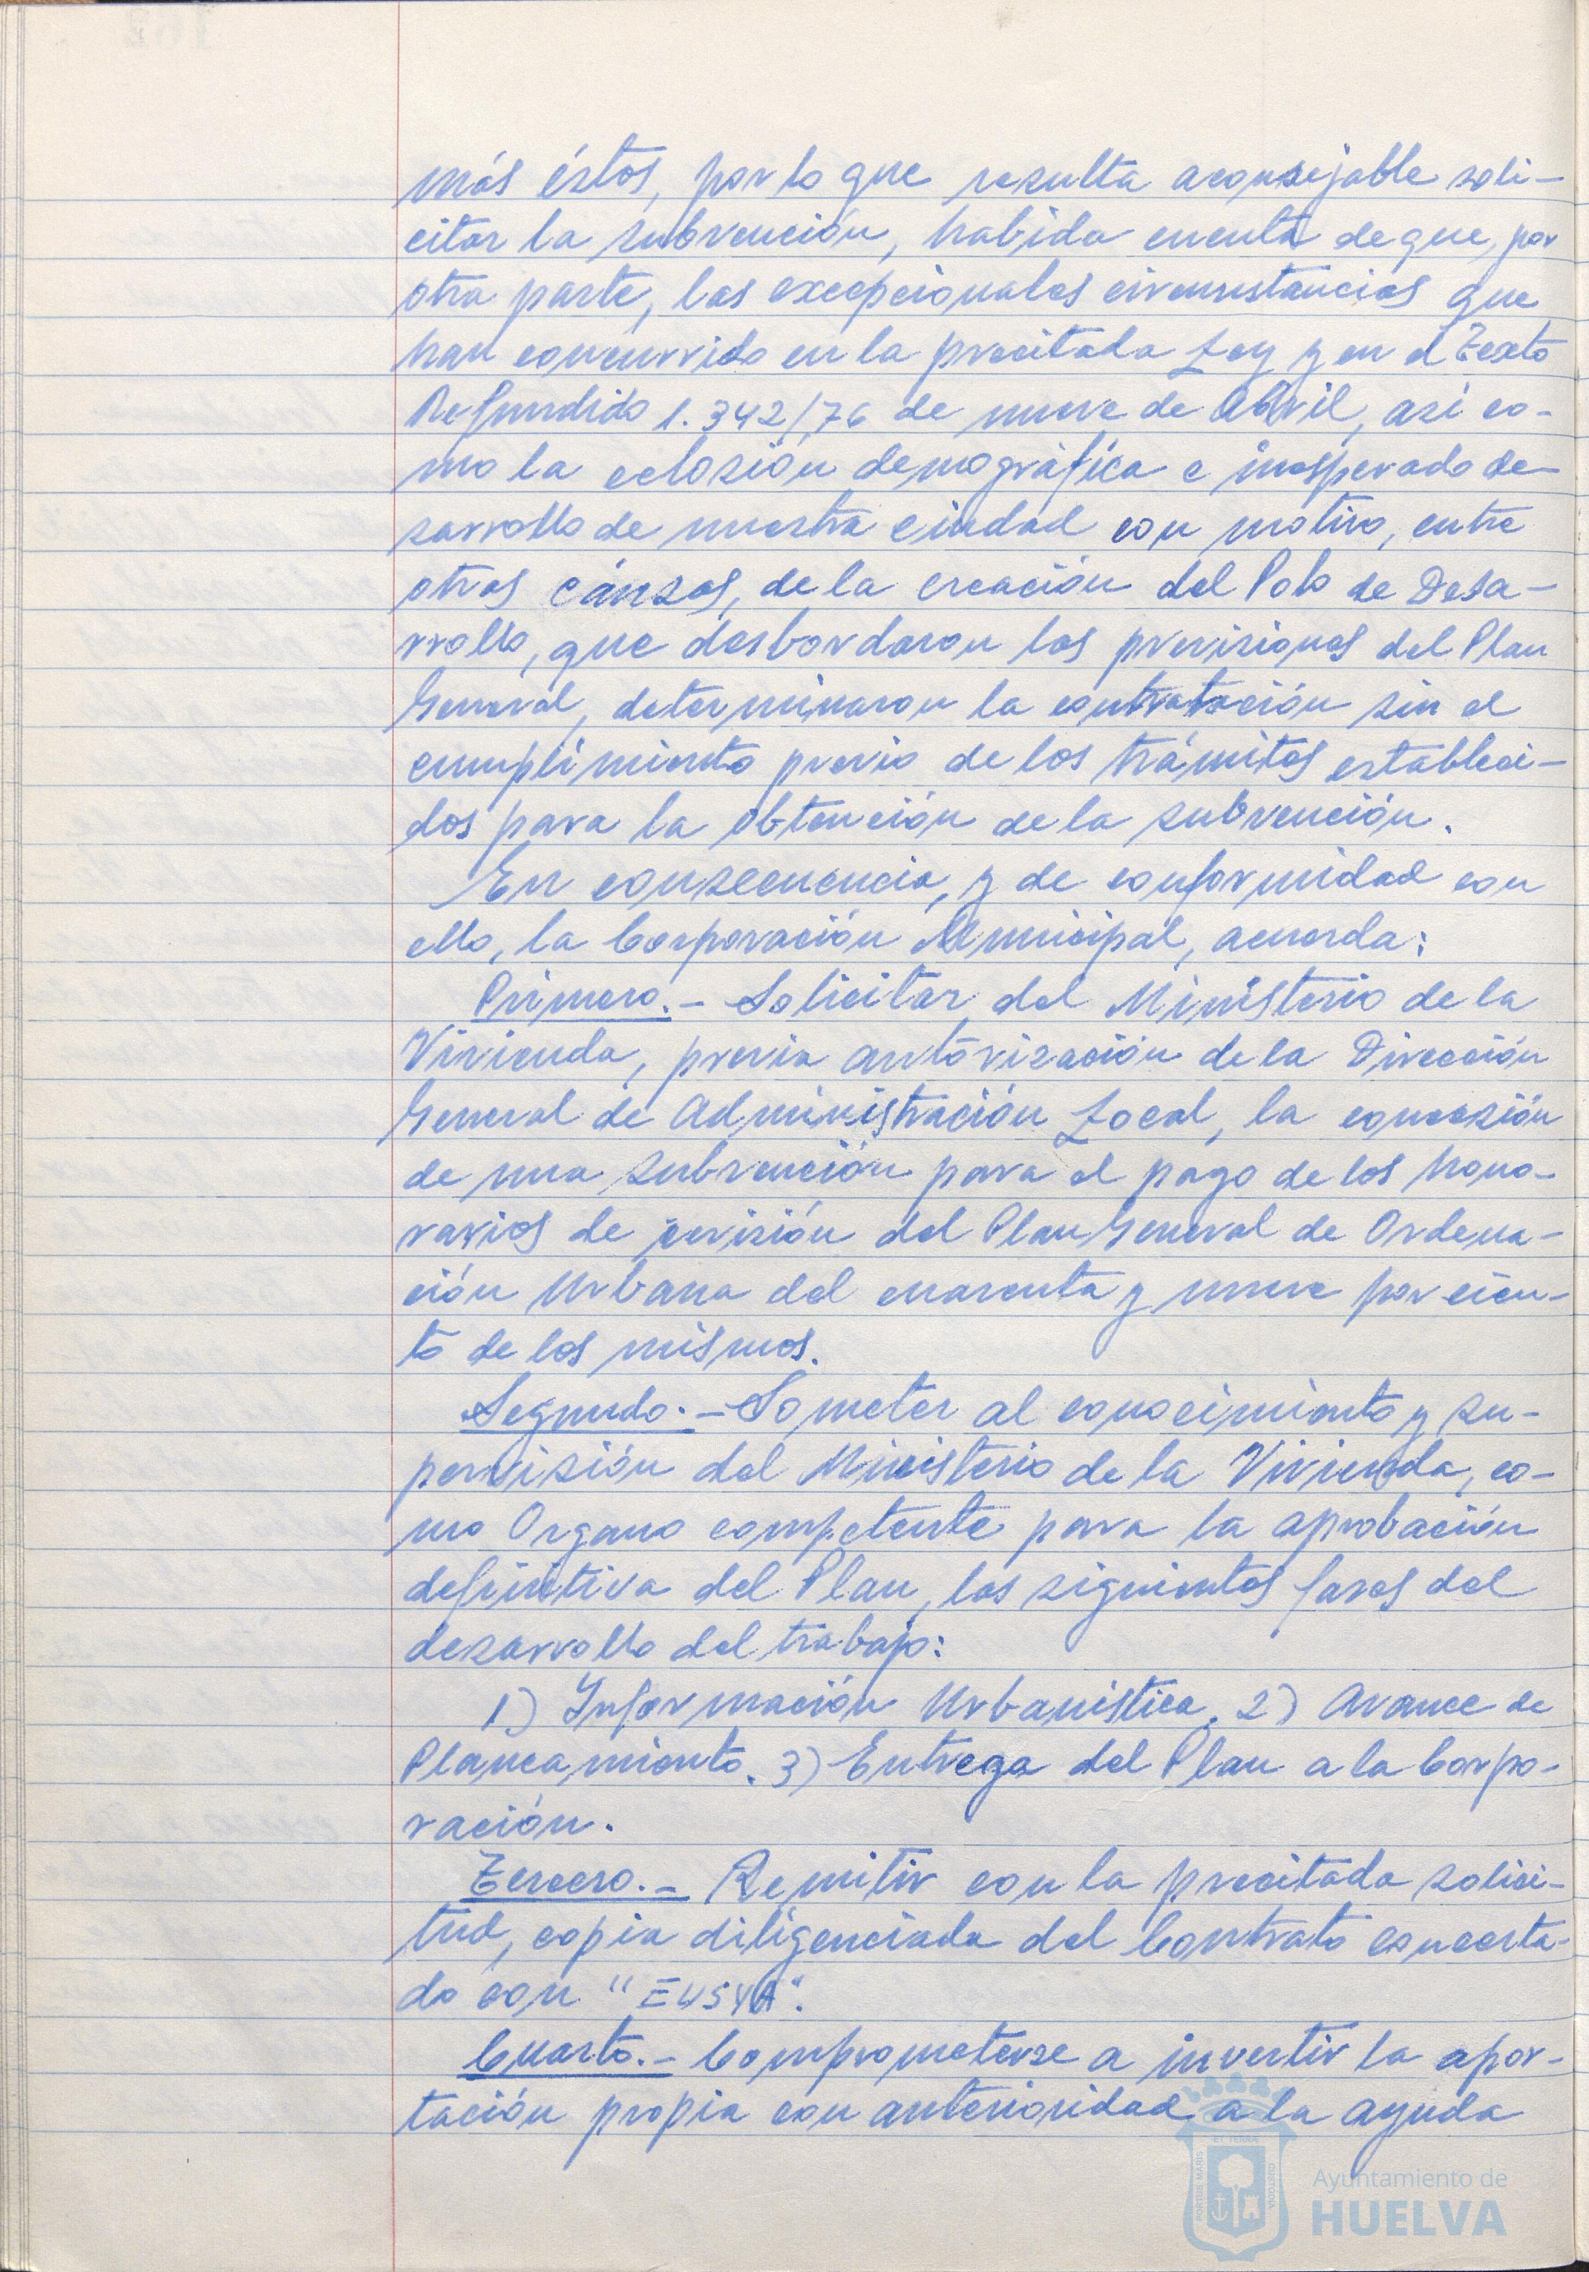 más éstos, por lo que resulta aconsejable soli-
citar la subvención, habida cuenta de que, por
otra parte, las excepcionales circunstancias que
han concurrido en la precitada Ley y en el Texto
Refundido 1.342/76 de nueve de Abril, así co-
mo la eclosión demográfica e inesperado de-
sarrollo de nuestra ciudad con motivo, entre
otras cáusas, de la creación del Polo de Desa-
rrollo, que desbordaron las previsiones del Plan
General, determinaron la contratación sin el
cumplimiento previo de los trámites estableci-
dos para la obtención de la subvención.
En consecuencia, y de conformidad con
ello, la Corporación Municipal, acuerda:
Primero.- Solicitar del Ministerio de la
Vivienda, previa autorización de la Dirección
General de Administración Local, la concesión
de una subvención para el pago de los hono-
rarios de revisión del Plan General de Ordena-
ción Urbana del cuarenta y nueve por cien-
to de los mismos.
Segundo.- Someter al conocimiento y su-
pervisión del Ministerio de la Vivienda, co-
mo Organo competente para la aprobación
definitiva del Plan, las siguientes fases del
desarrollo del trabajo:
1) Información Urbanística. 2) Avance de
Planeamiento. 3) Entrega del Plan a la Corpo-
ración.
Tercero.- Remitir con la precitada solici-
tud, copia diligenciada del Contrato concerta-
do con "EUSYA".
Cuarto.- Comprometerse a invertir la apor-
tación propia con anterioridad a la ayuda
PORTUS MARIS ET TERRAE CUSTODIA
Ayuntamiento de
HUELVA